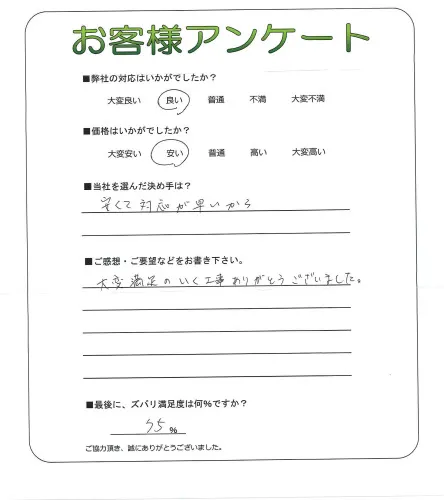 お客様アンケート
■弊社の対応はいかがでしたか？
大変良い 良い 普通 不満 大変不満
■価格はいかがでしたか？
大変安い 安い 普通 高い 大変高い
■当社を選んだ決め手は？
安くて対応が早いから
■ご感想・ご要望などをお書き下さい。
大変満足のいく工事ありがとうございました。
■最後に、ズバリ満足度は何％ですか？
％
ご協力頂き、誠にありがとうございました。